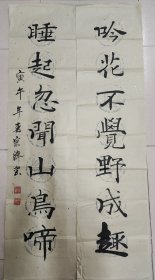 吟花不覺野成趣
睡起忽聞山鳥啼